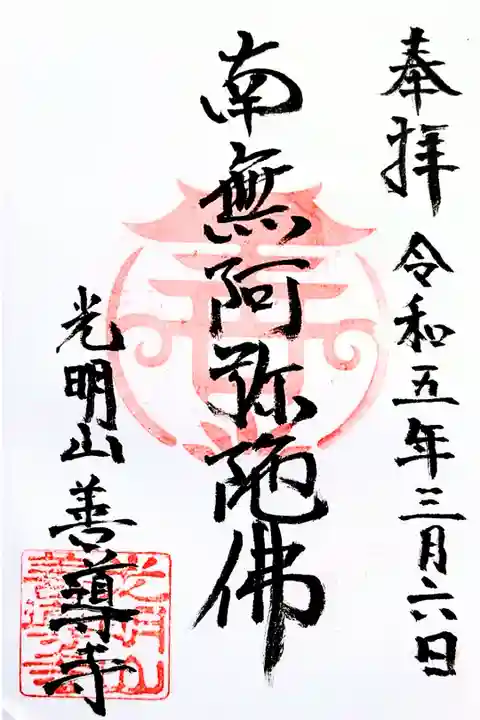 奉拝 令和五年三月六日
南無阿弥陀佛
光明山 善導寺
光明山
善導寺